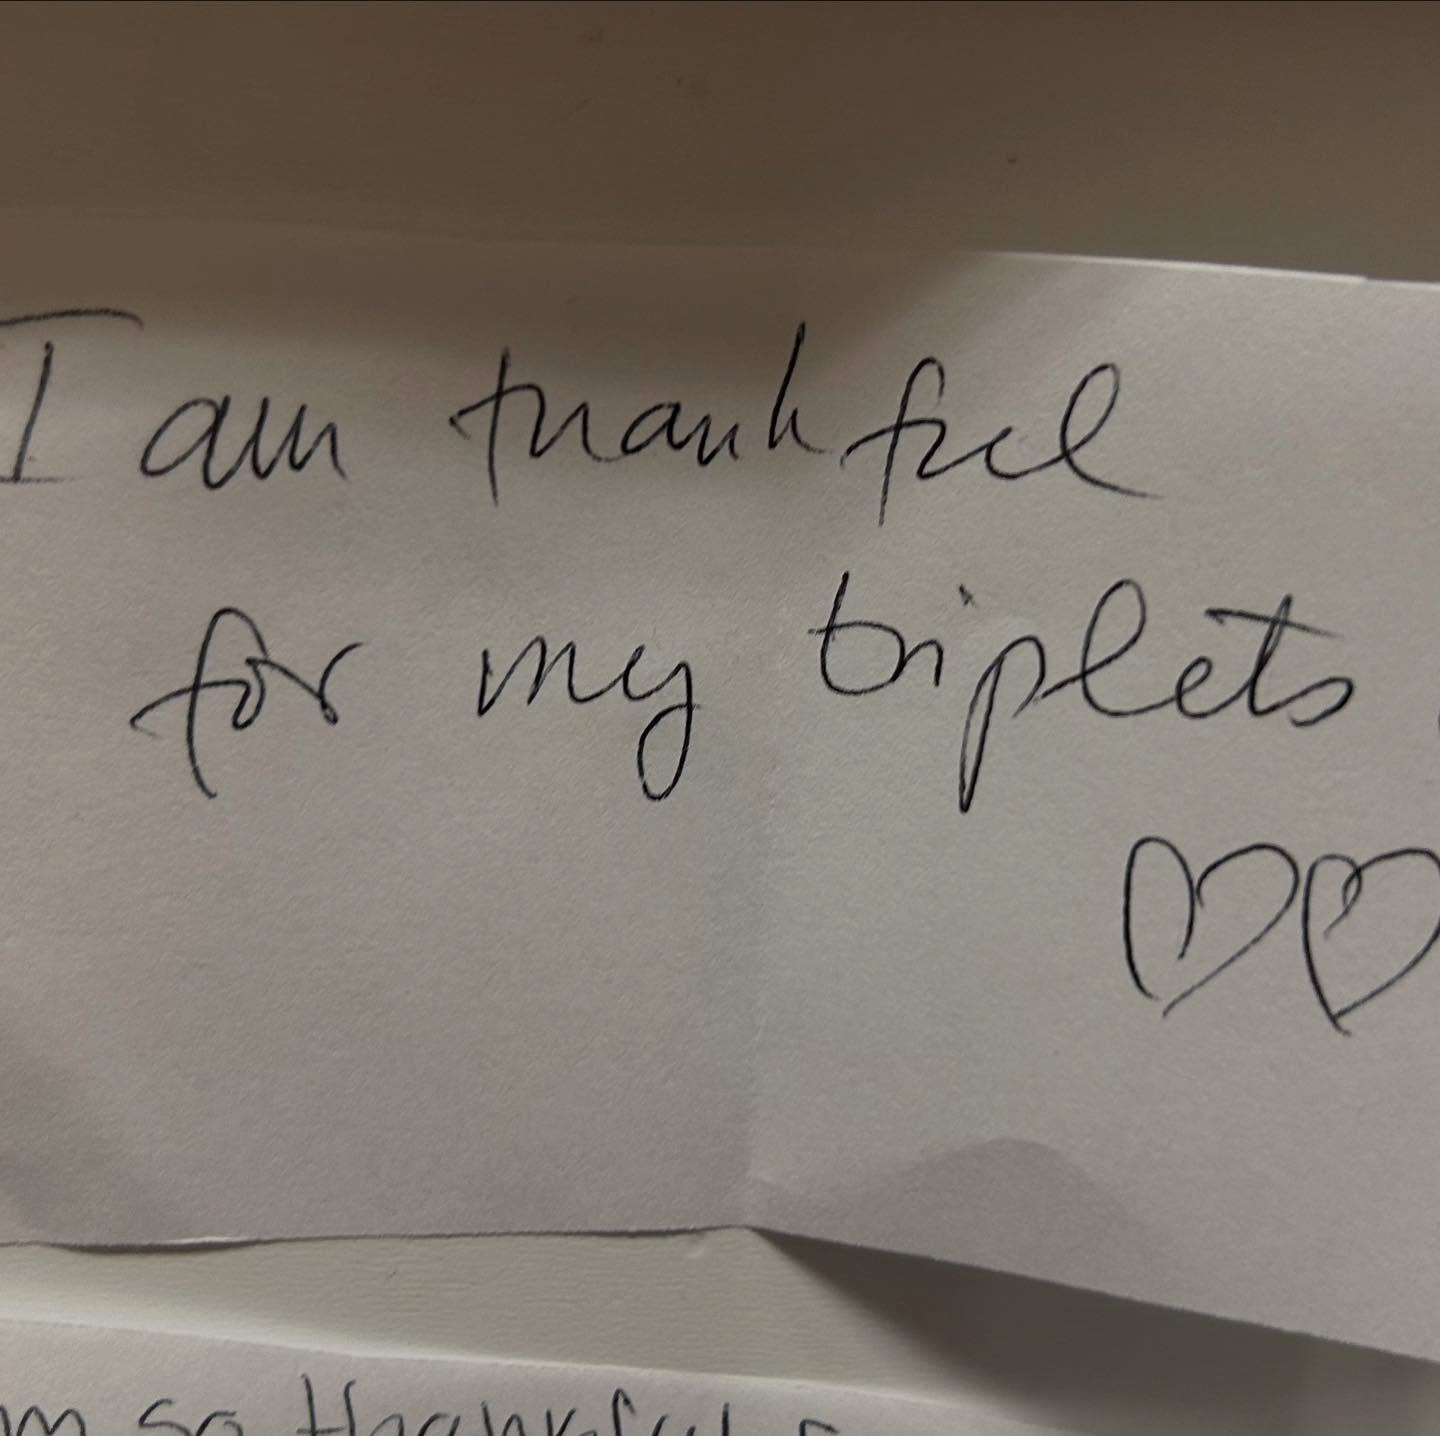 I am thankful
for my triplets.
♡♡
am so thankful